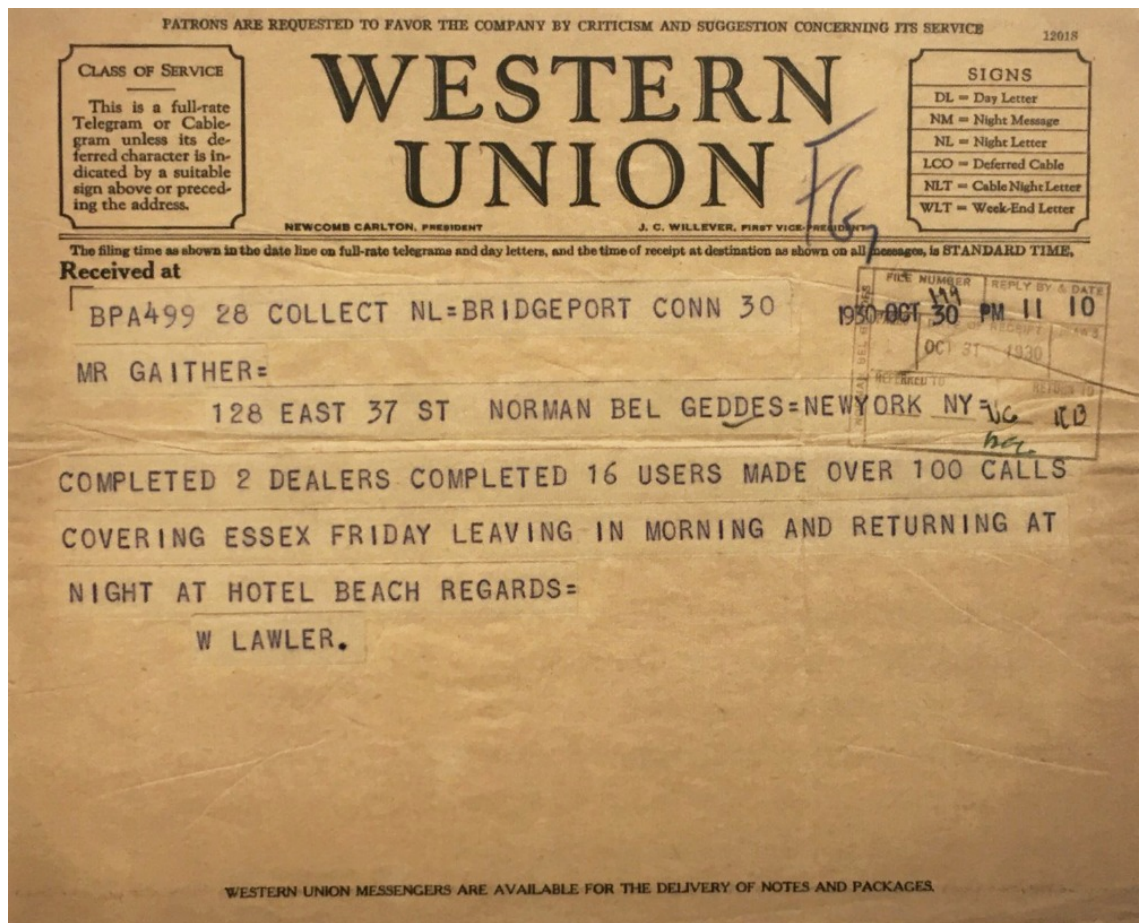 PATRONS ARE REQUESTED TO FAVOR THE COMPANY BY CRITICISM AND SUGGESTION CONCERNING ITS SERVICE
1201S
CLASS OF SERVICE
This is a full-rate
Telegram or Cable-
gram unless its de-
ferred character is in-
dicated by a suitable
sign above or preced-
ing the address.
WESTERN
UNION
NEWCOMB CARLTON, PRESIDENT
J. C. WILLEVER, FIRST VICE-PRESIDENT
SIGNS
DL = Day Letter
NM = Night Message
NL = Night Letter
LCO = Deferred Cable
NLT = Cable Night Letter
WLT = Week-End Letter
The filing time as shown in the date line on full-rate telegrams and day letters, and the time of receipt at destination as shown on all messages, is STANDARD TIME.
Received at
FILE NUMBER
REPLY BY & DATE
BPA499 28 COLLECT NL=BRIDGEPORT CONN 30
1930 OCT 30 PM 11 10
OF RECEIPT
OCT 31 1930
REFERRED TO
RETURN TO
MR GAITHER=
128 EAST 37 ST NORMAN BEL GEDDES=NEWYORK NY=
COMPLETED 2 DEALERS COMPLETED 16 USERS MADE OVER 100 CALLS
COVERING ESSEX FRIDAY LEAVING IN MORNING AND RETURNING AT
NIGHT AT HOTEL BEACH REGARDS=
W LAWLER.
WESTERN UNION MESSENGERS ARE AVAILABLE FOR THE DELIVERY OF NOTES AND PACKAGES.